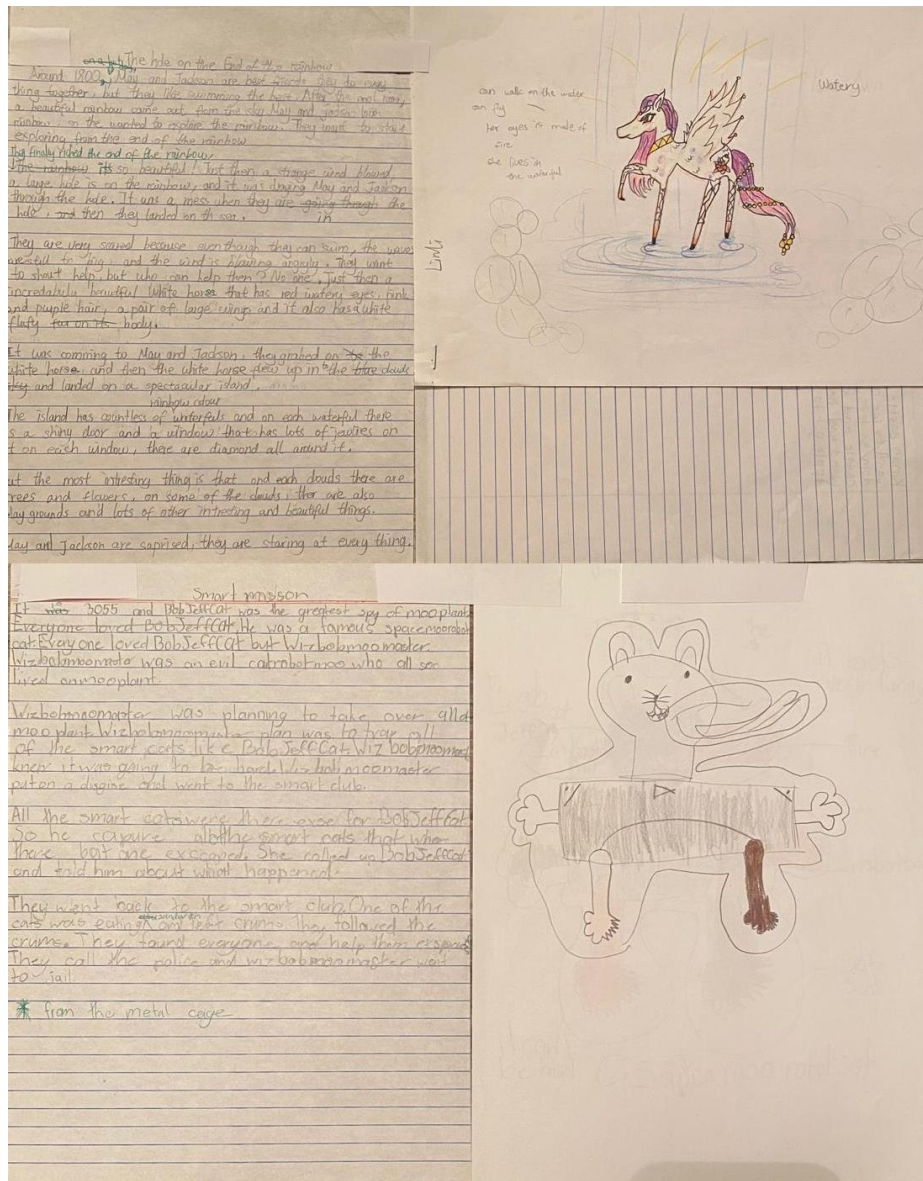 The hole on the End of the rainbow
Around 1800, May and Jackson are best friends they do every
thing together, but they like swimming the best. After the
a beautiful rainbow came out from the sky May and Jackson love
rainbow, so the wanted to explore the rainbow. They to start
exploring from the end of the rainbow
They finally riched the end of the rainbow.
its so beautiful! Just then a strange wind blowed,
a large hole is on the rainbow, and it was draging May and Jackson
through the hole. It was a mess when they are going through the
hole, and then they landed in th sea.
They are very scared because even though they can swim, the wave
are still to big, and the wind is blowing angrily. They want
to shout help, but who can help then? No one. Just then a
incredablely beautiful white horse that has red watery eyes, pink
and purple hair, a pair of large wings and it also has a white
flufy body.
It was comming to May and Jackson, they grabed on the
white horse, and then the white horse flew up in the clouds
and landed on a spectacular island.
rainbow colour
The island has countless of waterfuls and on each waterful there
s a shiny door and a window that has lots of jewires on
t on each window, there are diamond all around it.
ut the most intresting thing is that and each clouds there are
rees and flowers, on some of the clouds, ther are also
lay grounds and lots of other intresting and beautiful things.
May and Jackson are saprised, they are staring at every thing.
can walk on the water
can fly
her eyes is made of
fire
she lives in
the waterful
Watery
Smart misson
It was 3055 and BobJeffCat was the greatest spy of mooplant
Everyone loved BobJeffCat. He was a famous spacemoorobot
cat. Every one loved BobJeffCat but Wizbobmoomaster.
Wizbobmoomaster was an evil catrobotmoo who all so
lived on mooplant.
Wizbobmoomaster was planning to take over alla
mooplant. Wizbobmoomaster plan was to trap all
of the smart cats like BobJeffCat. Wizbobmoomast
knew it was going to be hard. Wizbobmoomaster
put on a disgise and went to the smart club.
All the smart cats were there exse for BobJeffCat.
So he capure all the smart cats that wher
there but one exscaped. She called up BobJeffCat
and told him about what happened.
They went back to the smart club. One of the
cats was eating and left crums. They followed the
crums. They found everyone and help them
They call the police and wizbobmoomaster went
to jail
* from the metal cage